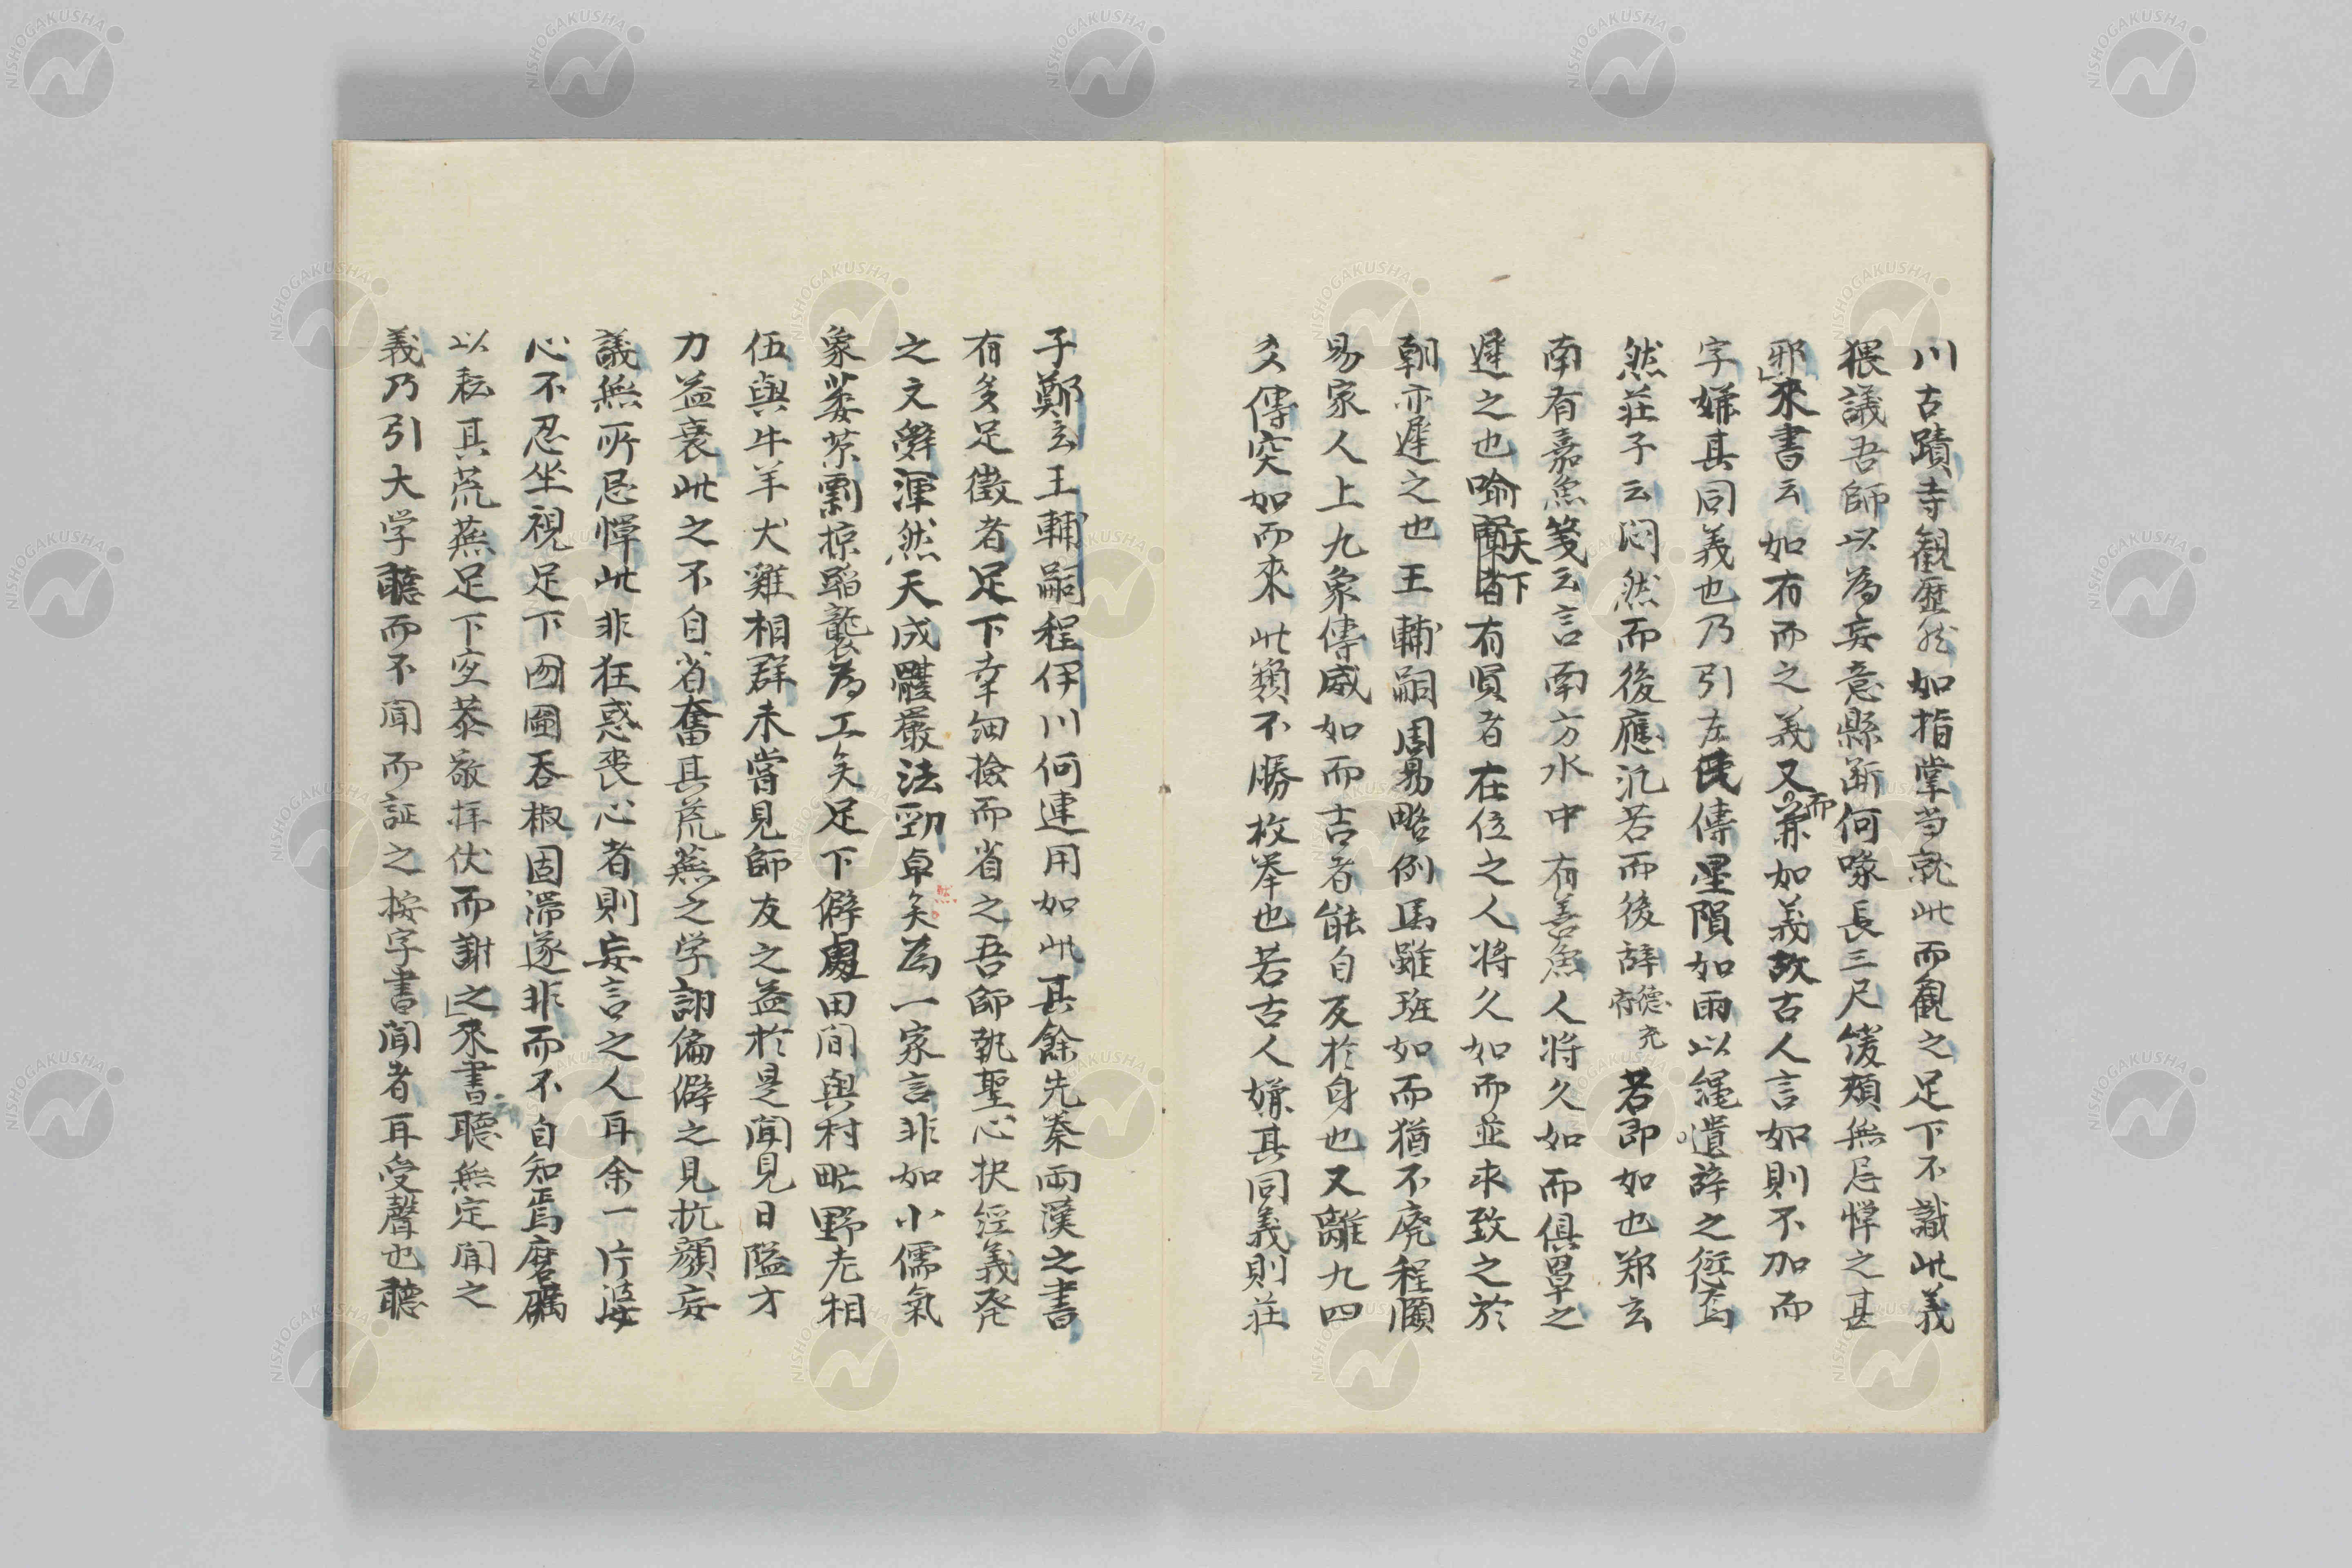 川古蹟寺観歴然如指掌苟就此而観之足下不識此義
猥議吾師以為妄意縣断何喙長三尺緩頬無忌憚之甚
邪来書云如有而之義又而兼如義故古人言如則不加而
字嫌其同義也乃引左氏傳星隕如雨以縄遣辞之愆焉
然荘子云悶然而後應氾若而後辞德充符若即如也郑玄
南有嘉魚箋云言南方水中有善魚人将久如而俱罩之
遲之也喩天下有賢者在位之人将久如而並求致之於
朝亦遲之也王輔嗣周易略例馬雖班如而猶不廃程頤
易家人上九象傳威如而吉者能自反於身也又離九四
爻傳突如而来此類不勝枚挙也若古人嫌其同義則荘
子鄭玄王輔嗣程伊川何連用如此其餘先秦両漢之書
有多足徵者足下幸細撿而省之吾師執聖心抉經義発
之文辭渾然天成體嚴法勁卓矣為一家言非如小儒氣
象萎茶剽掠蹈襲為工矣足下僻處田間與村甿野老相
伍與牛羊犬雞相群未嘗見師友之益於是聞見日隘才
力益衰此之不自省奮其荒蕪之学詡偏僻之見抗顔妄
議無所忌憚此非狂惑喪心者則妄言之人耳余一片婆
心不忍坐視足下囫圇吞椒固滞遂非而不自知焉磨礪
以耘其荒蕪足下宜恭敬拝伏而謝之来書云聽無定聞之
義乃引大学聽而不聞而証之按字書聞者耳受聲也聽
NISHOGAKUSHA